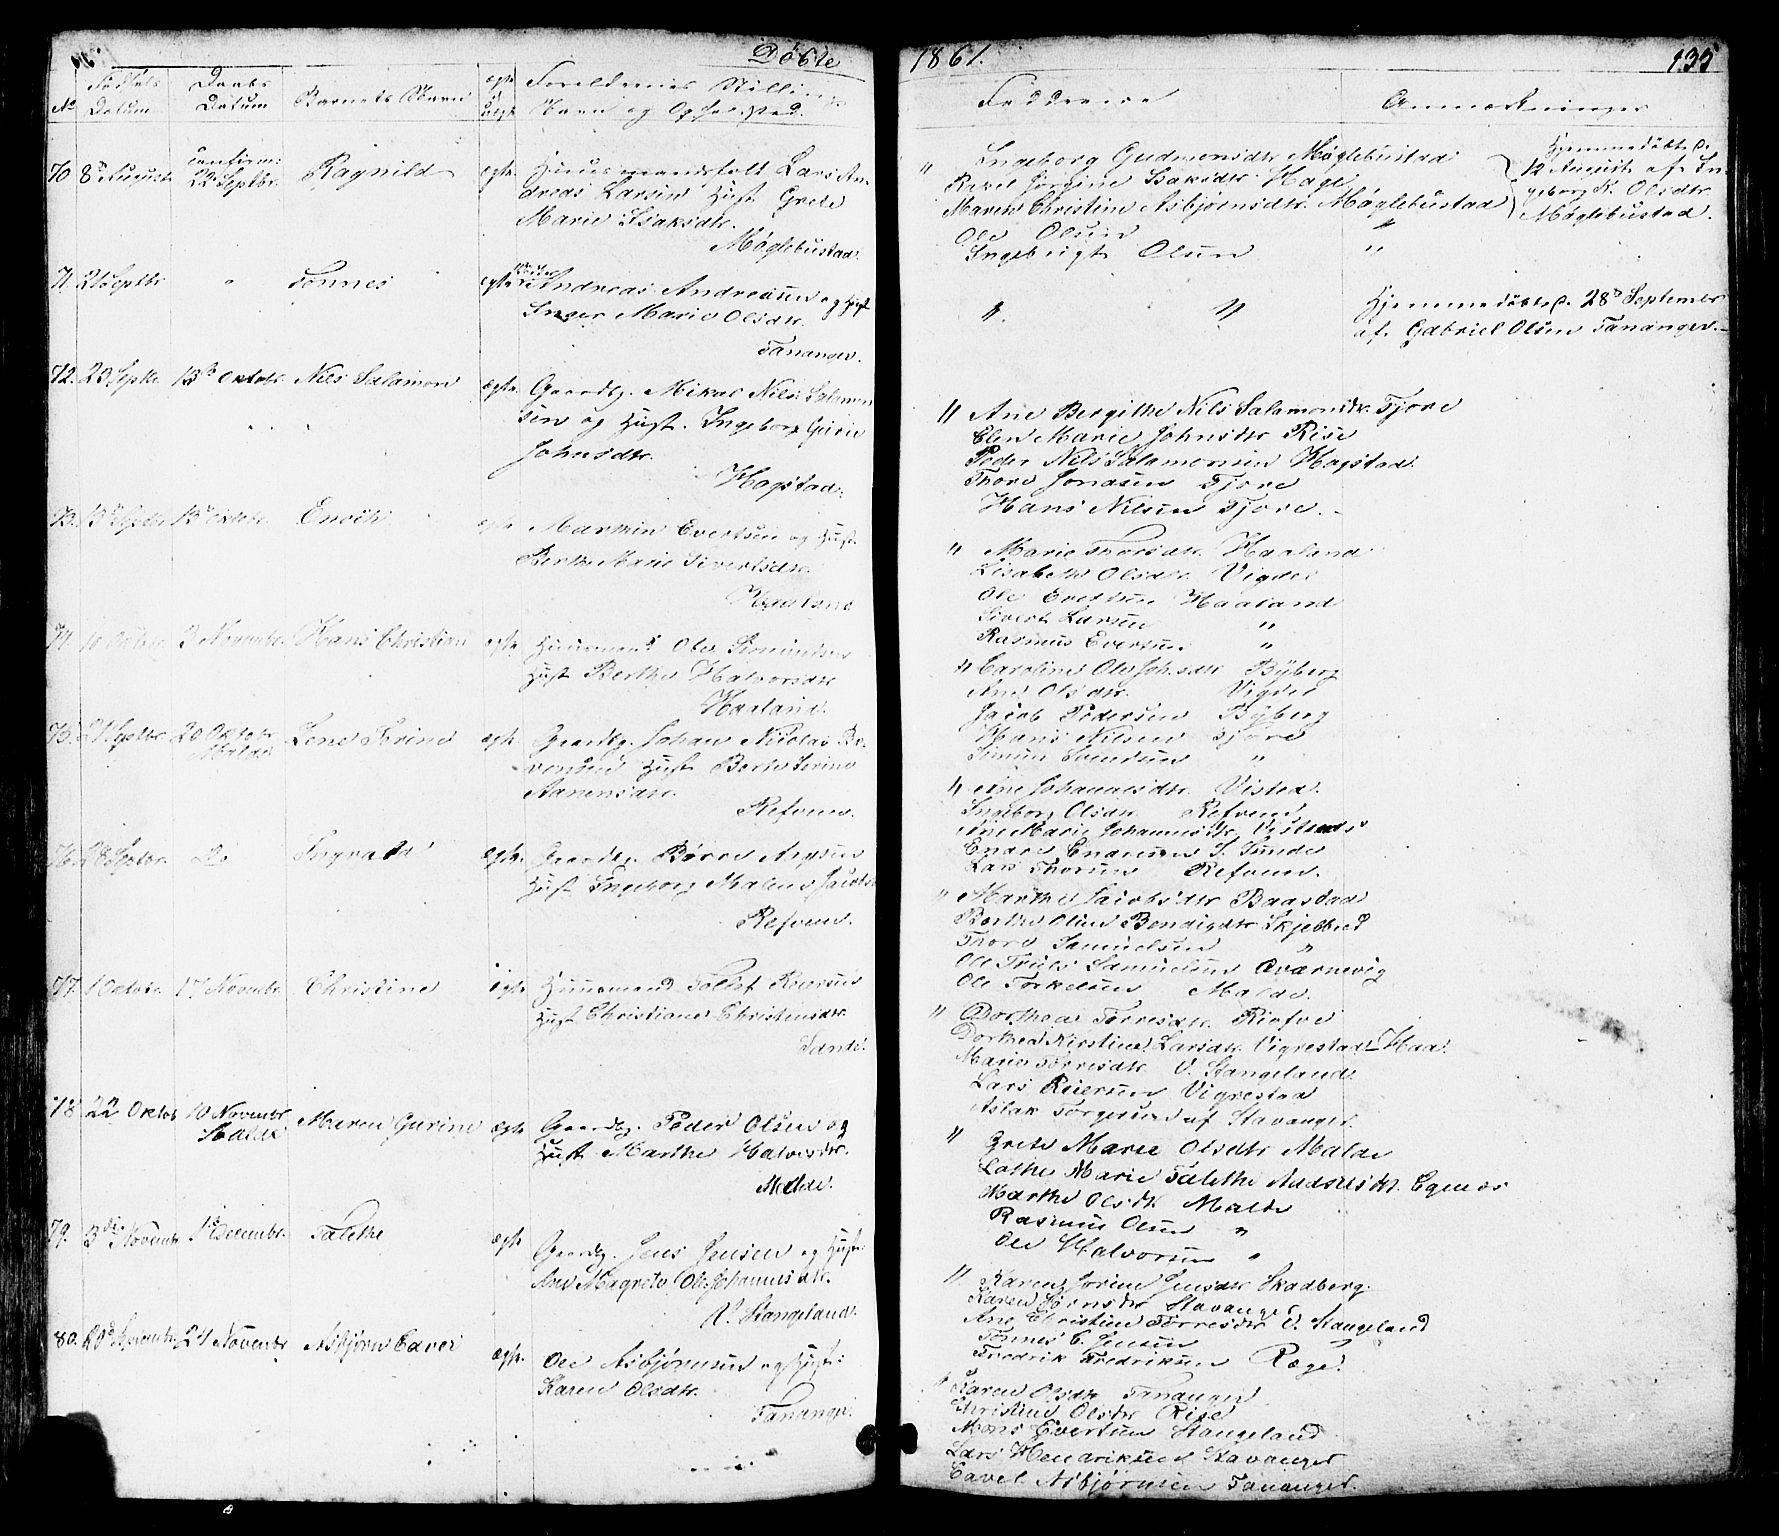 Döbte
1861.
135
No
Fødsels Datum
Daabs Datum
Barnets Navn
ægte uægte
Forældrenes Stilling Navn og Opholdsted.
Fadderne
Anmærkninger
70 8de August
confirm: 22 Septbr.
Ragnild
ægte.
Huusmandsfolk Lars An-
dreas Larsen Hust. Grete
Marie Isaksdtr.
Møglebustad.
" Ingeborg Gudmonsdtr. Møglebustad
Isaksdtr. Hagle
Maren Christine Asbjørnsdtr. Møglebustad
Ole Olsen "
Ingebrigt Olsen "
Hjemmedöbt d.
12 August af In-
geborg N. Olsdtr.
Møglebustad.
71. 21 Septbr. " Tönnes
ægte.
Andreas Andreasen og Hust.
Inger Marie Olsdtr.
Tananger.
" "
Hjemmedöbt d. 28de Septembr.
af Gabriel Olsen Tananger.
72. 23 Septbr. 13de Octobr. Nils Salamon
ægte.
Gaardbg. Mikal Nils Salamon
sen og Hust. Ingeborg Gurie
Johnsdtr.
Hogstad.
" Ane Bergithe Nils Salamonsdtr. Tjore
Elen Marie Johnsdtr. Risa
Peder Nils Salamonsen Hogstad.
Thore Jonasen Tjore
Hans Nilsen Tjore.
73. 13de Septbr. 13de Octobr. Enoch
Marthin Evertsen og Hust.
Berthe Marie Sivertsdtr.
Haaland
" Marie Thorsdtr. Haaland
Lisabeth Olsdtr. Vigdel
Ole Evertsen Haaland
Sivert Larsen "
Rasmus Evertsen "
74. 10 Octobr. 3 Novembr. Hans Christian
ægte.
Huusmand Ole Simundsen
Hust. Berthe Halvorsdtr.
Haaland.
" Caroline Ole Johsdtr. Byberg
Ane Olsdtr. Vigdel
Jacob Pedersen Byberg
Hans Nilsen Tjore
Simon Svendsen "
75. 21 Septbr. 20 Octobr. Malde
Lene Serine
ægte.
Gaardbg. Johan Nicolas
Hust. Berte Serine
Aanensdtr.
Refvem.
" Ane Johannesdtr. Visted.
Ingeborg Olsdtr. Refvem
Ane Marie Johannesdtr. Visted
Endre Endresen S. Sunde
Lars Thorsen Refvem.
76. 28 Septbr. Do
Ingvald
ægte.
Gaardbg. Börre
Hust. Ingeborg Malene Jacobs
Refvem.
" Marthe Jacobsdtr. Baastad
Berthe Oline Bendigsdtr. Skjebbed
Thore Samuelsen "
Ole Truls Samuelsen Qværnevig
Ole Torkelsen Malde.
77. 1 Octobr. 17 Novembr. Christine
ægte.
Huusmand Tollef Reiersen
Hust. Christiane Christensdtr.
Sande.
" Dorthea Torresdtr. Risfve
Dorthea Kirstine Larsdtr. Vigrestad Haa.
Marie Torresdtr. V. Stangeland.
Lars Reiersen Vigrestad
Aslak Torgersen af Stavanger.
78. 22 Octob. 10 Novembr. Malde
Maren Gurine
ægte.
Gaardbg. Peder Olsen og
Hust. Marthe Halvorsdtr.
Malde.
" Grete Marie Olsdtr. Malde
Marie Talethe Egenæs
Marthe Olsdtr. Malde
Rasmus Olsen "
Ole Halvorsen "
79. 3die Novembr. 1ste Decembr. Talethe
ægte.
Gaardbg. Jens Jensen og Hust.
Ane Magrete Ole Johannesdtr.
V. Stangeland.
" Karen Jorine Jensdtr. Skadberg.
Karen Stavanger
Ane Christine Torresdtr. V. Stangeland
Tönnes C. Jensen
Fredrik Fredriksen Ræge.
80. 20de Novembr. 24 Novembr. Asbjörn Eavel
ægte.
Ole Asbjörnsen og Hust:
Karen Olsdtr.
Tananger.
" Karen Olsdtr. Tananger
Christine Olsdtr. Risa
Mons Evertsen Stangeland
Lars Hendriksen Stavanger
Eavel Asbjörnsen Tananger.